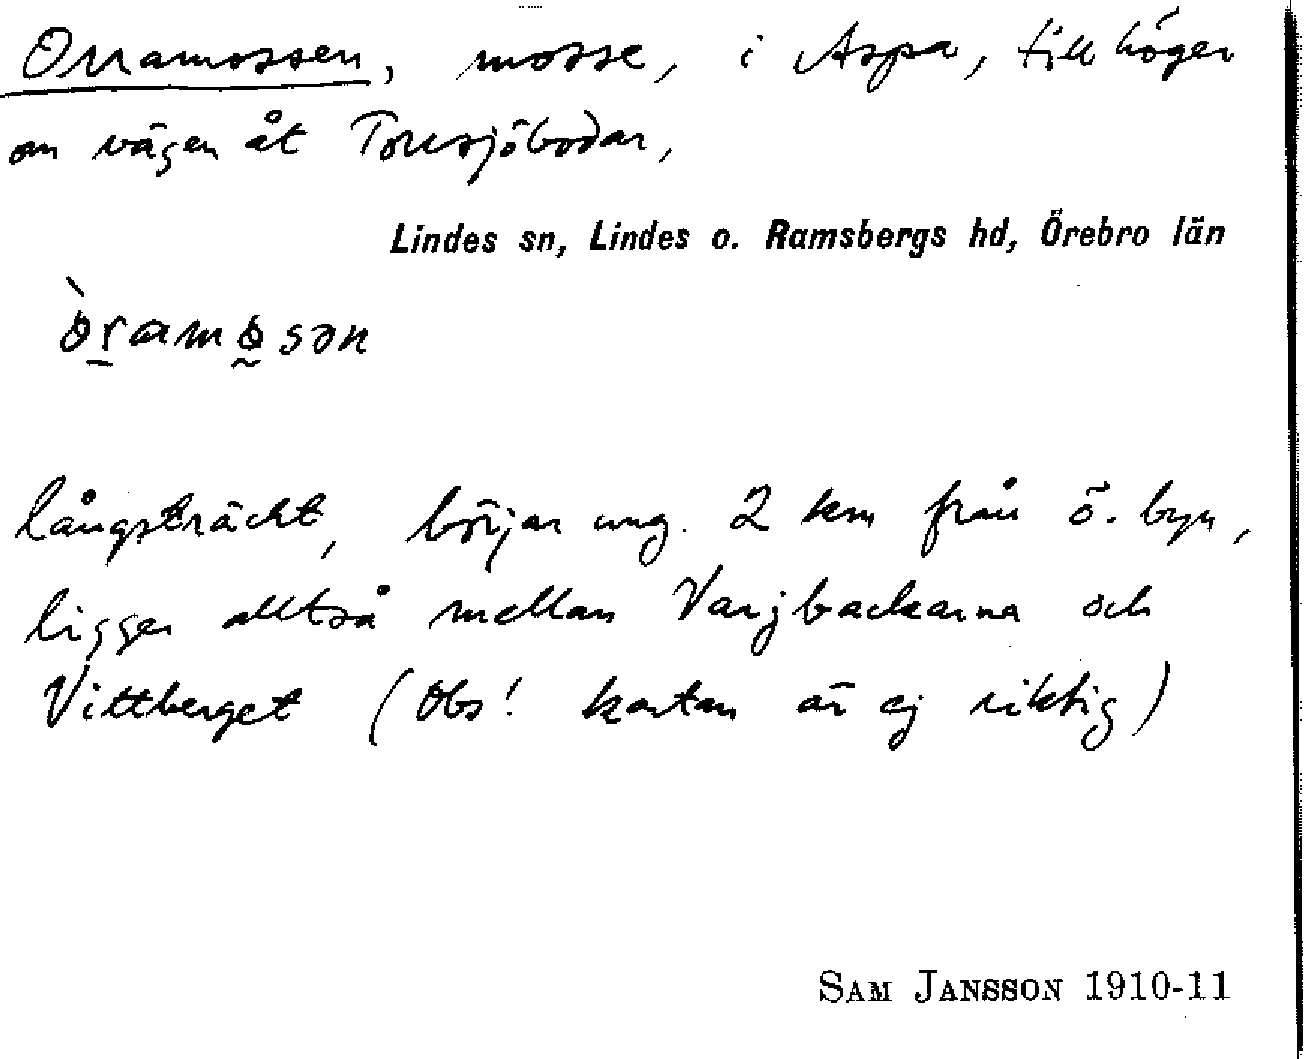 Orramossen, mosse, i Aspa, till höger
om vägen åt Torrsjöbodar,
Lindes sn, Lindes o. Ramsbergs hd, Örebro län
långsträckt, börjar ung. 2 km från ö. byn,
ligger alltså mellan Vargbackarna och
Vittberget (Obs! kartan är ej riktig)
SAM JANSSON 1910-11